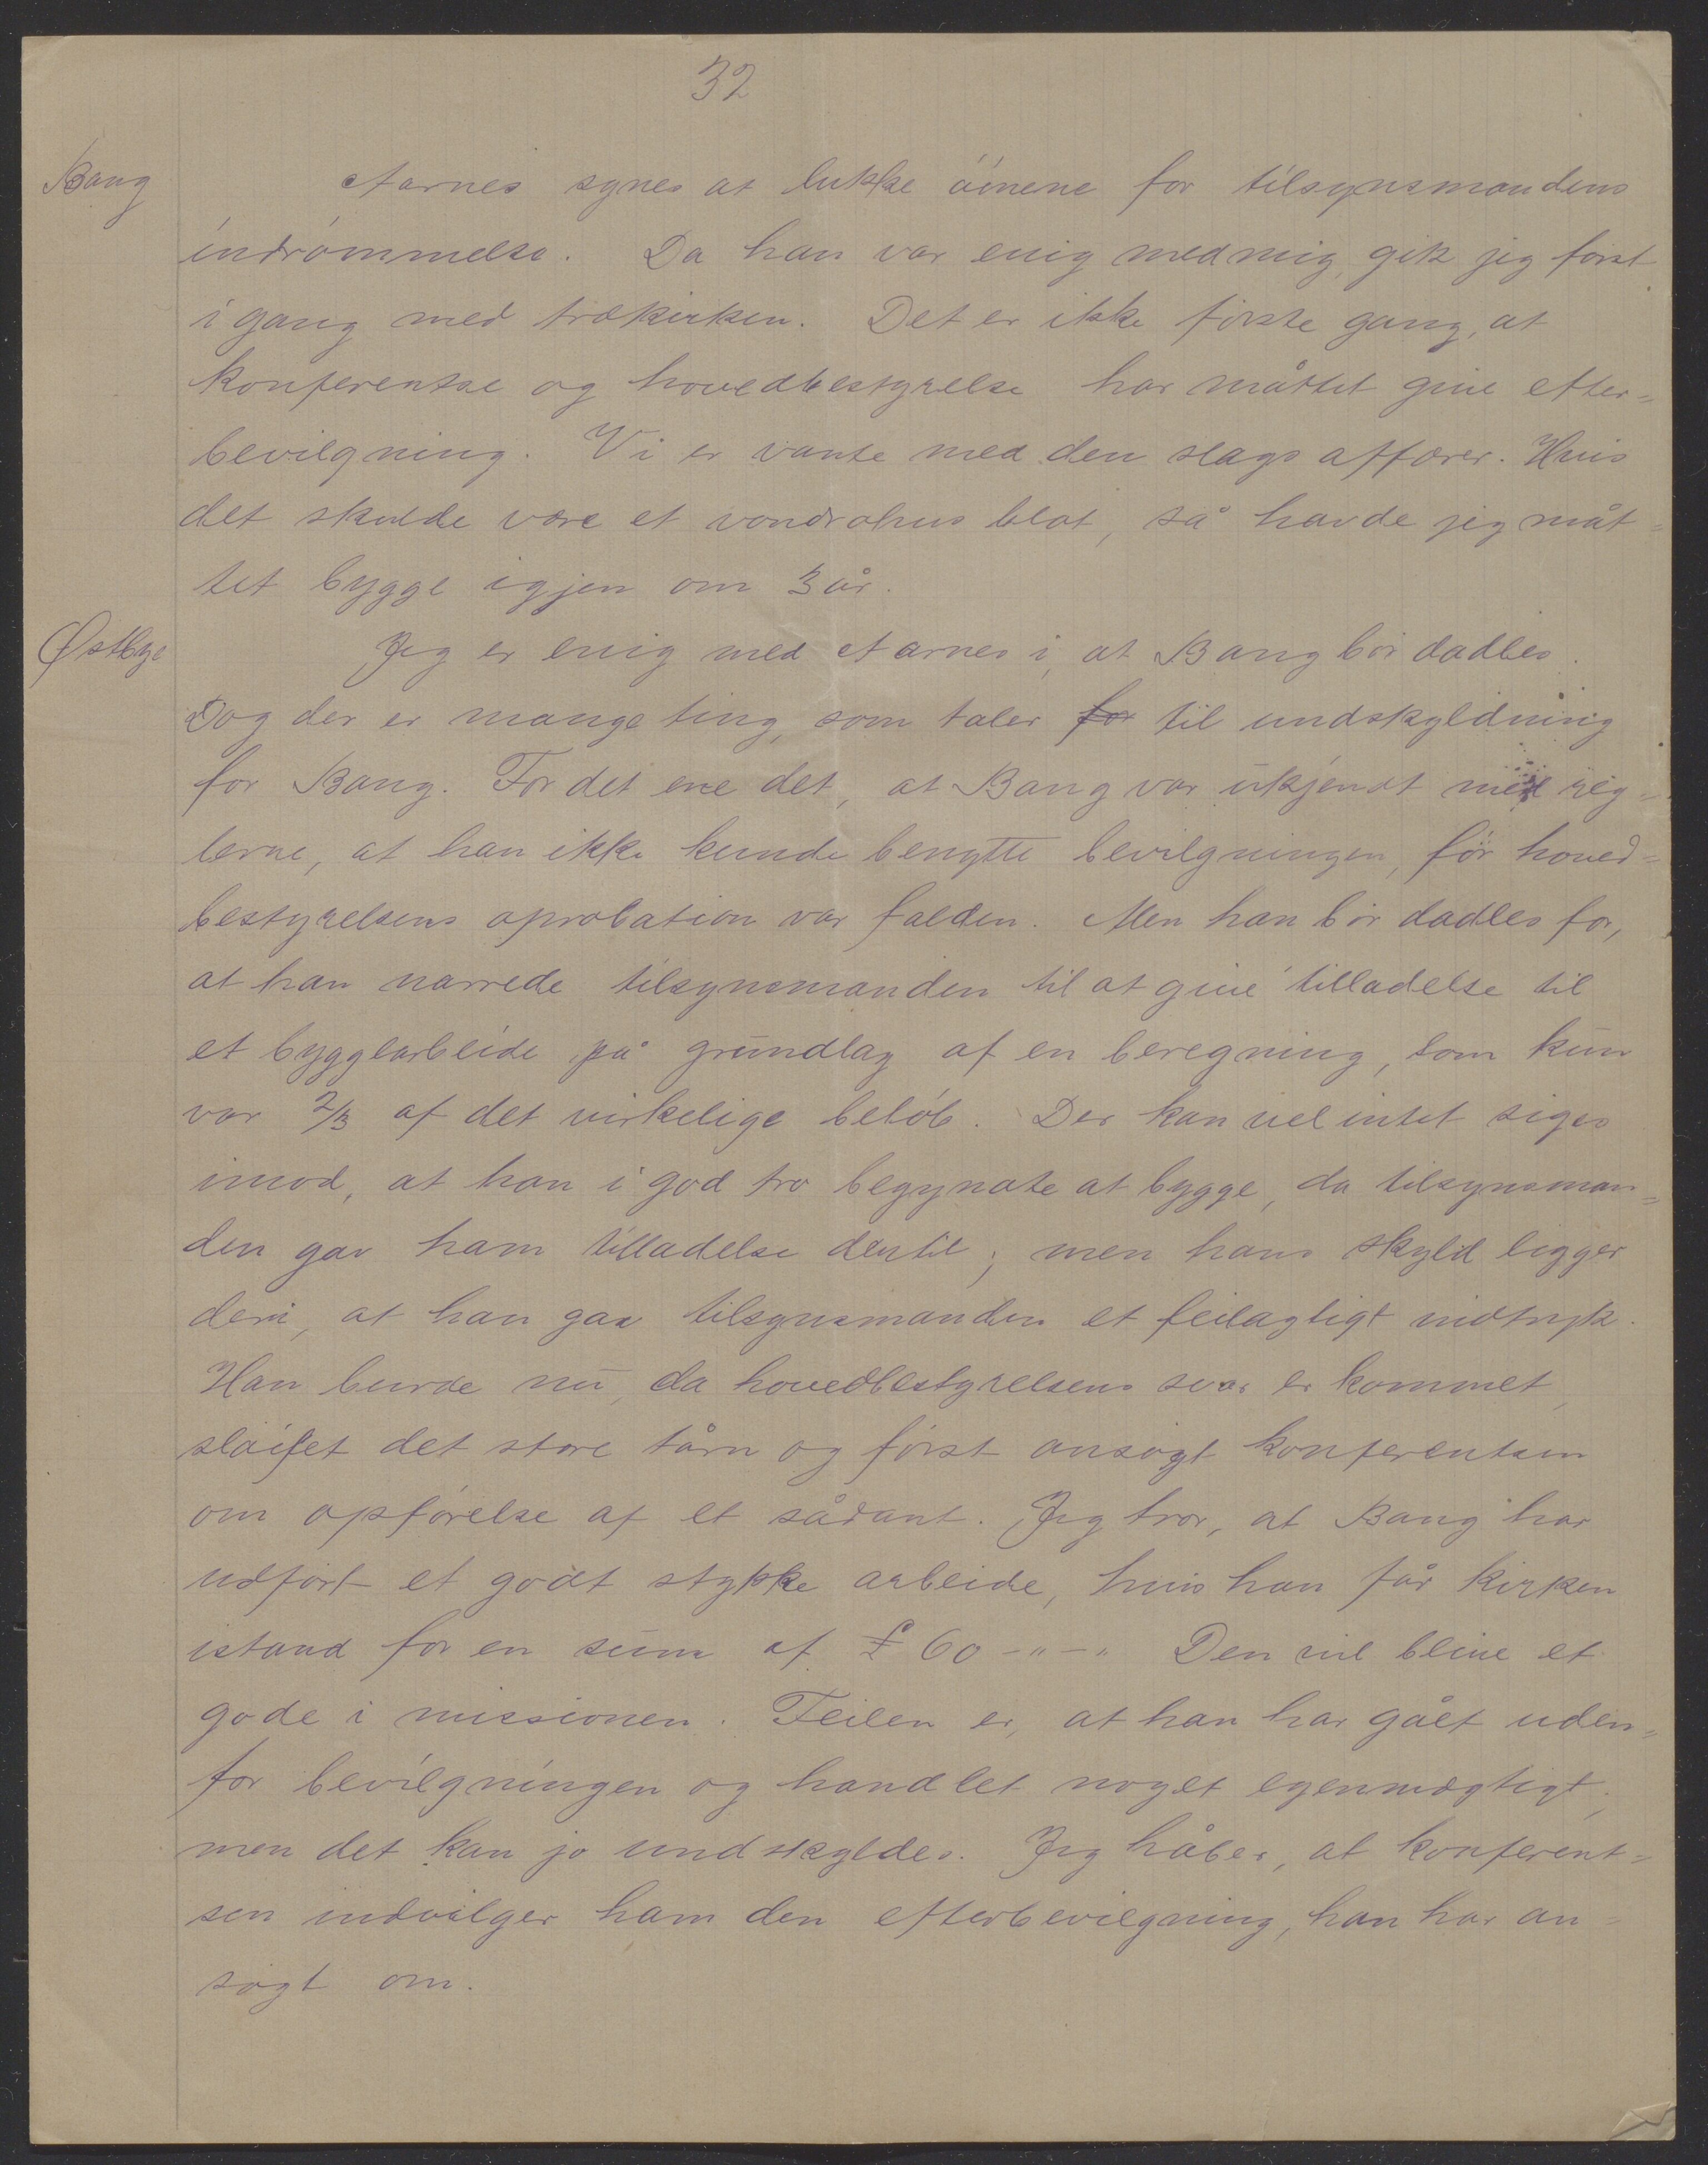 32
Bang
Aarnes synes at lukke óinene for tilsynsmandens
indrómmelse. Da han var enig med mig, gik jeg fórst
igang med trækirken. Det er ikke fórste gang, at
konferentse og hovedbestyrelse har måttet give efter=
bevilgning. Vi er vante med den slags affærer. Hvis
det skulde være et vondrohus blot, så havde jeg måt=
tet bygge igjen om 3 år.
Østbye
Jeg er enig med Aarnes i, at Bang bór dadles.
Dog der er mange ting, som taler for til undskyldning
for Bang. For det ene det, at Bang var ukjendt med reg=
lerne, at han ikke kunde benytte bevilgningen, fór hoved=
bestyrelsens aprobation var falden. Men han bór dadles for,
at han narrede tilsynsmanden til at give tilladelse til
et byggearbeide på grundlag af en beregning, som kun
var 2/3 af det virkelige belób. Der kan vel intet siges
imod, at han i god tro begyndte at bygge, da tilsynsman=
den gav ham tilladelse dertil; men hans skyld ligger
deri, at han gav tilsynsmanden et feilagtigt indtryk.
Han burde nu, da hovedbestyrelsens svar er kommet,
slóifet det store tårn og fórst ansógt konferentsen
om opfórelse af et sådant. Jeg tror, at Bang har
udfórt et godt stykke arbeide, hvis han får kirken
istand for en sum af £ 60 -"-" Den vil blive et
gode i missionen. Feilen er, at han har gået uden=
for bevilgningen og handlet noget egenmægtigt,
men det kan jo undskyldes. Jeg håber, at konferent=
sen indvilger ham den efterbevilgning, han har an=
sógt om.